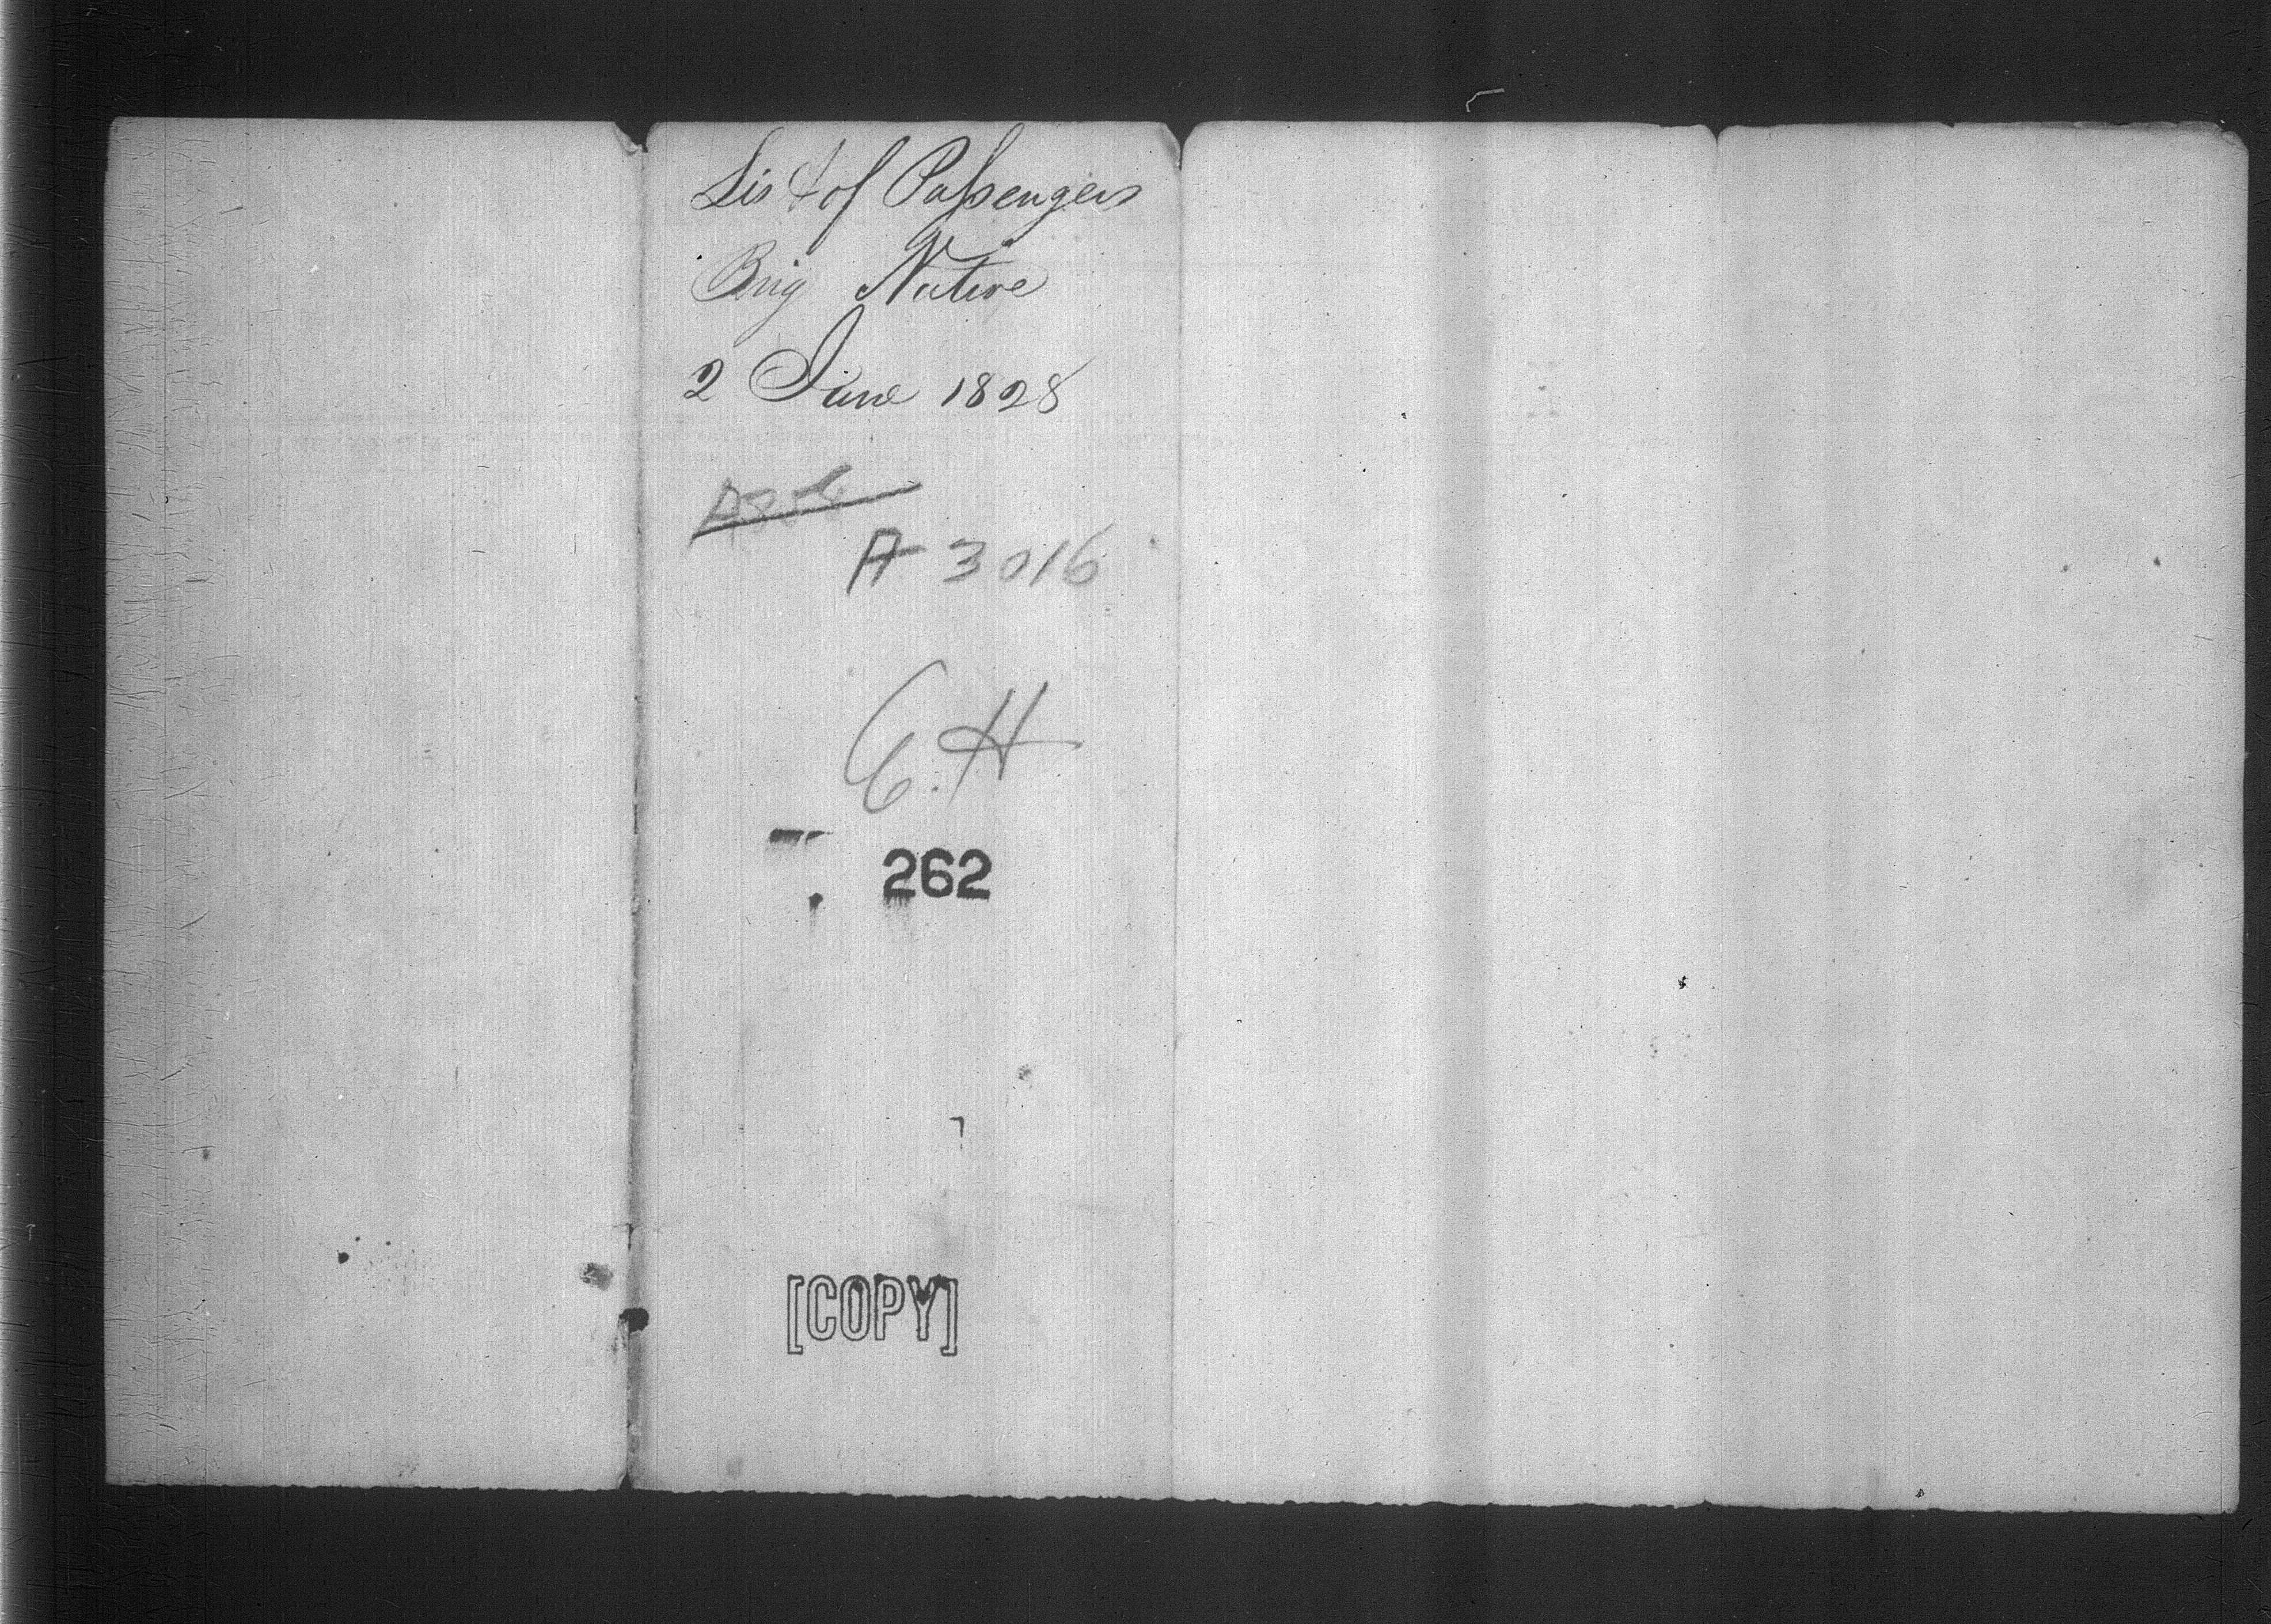 List of Passengers
Brig Native
2 June 1828
A 3016
E.H
262
[COPY]